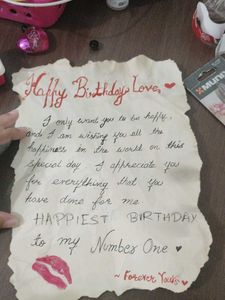 Happy Birthday Love,
I only want you to be happy,
and I am wishing you all the
happiness in the world on this
special day. I appreciate you
for everything that you
have done for me.
HAPPIEST BIRTHDAY
to my Number One
~ Forever Yours